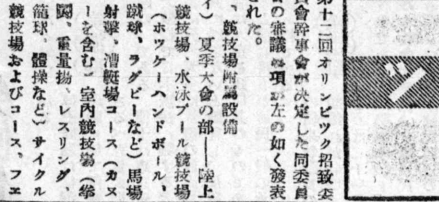 第十二回オリンピツク招致委
員會幹事會が決定した同委員
會の審議事項が左の如く發表
された。
、競技場附屬設備
イ)夏季大會の部――陸上
競技場、水泳プール競技場
(ホツケーハンドボール、
蹴球、ラグビーなど)馬場
射擊、漕艇場コース(カヌ
ーを含む)室内競技場(拳
鬪、重量揚、レスリング、
籠球、體操など)サイクル
競技場およびコース、フエ
ツ